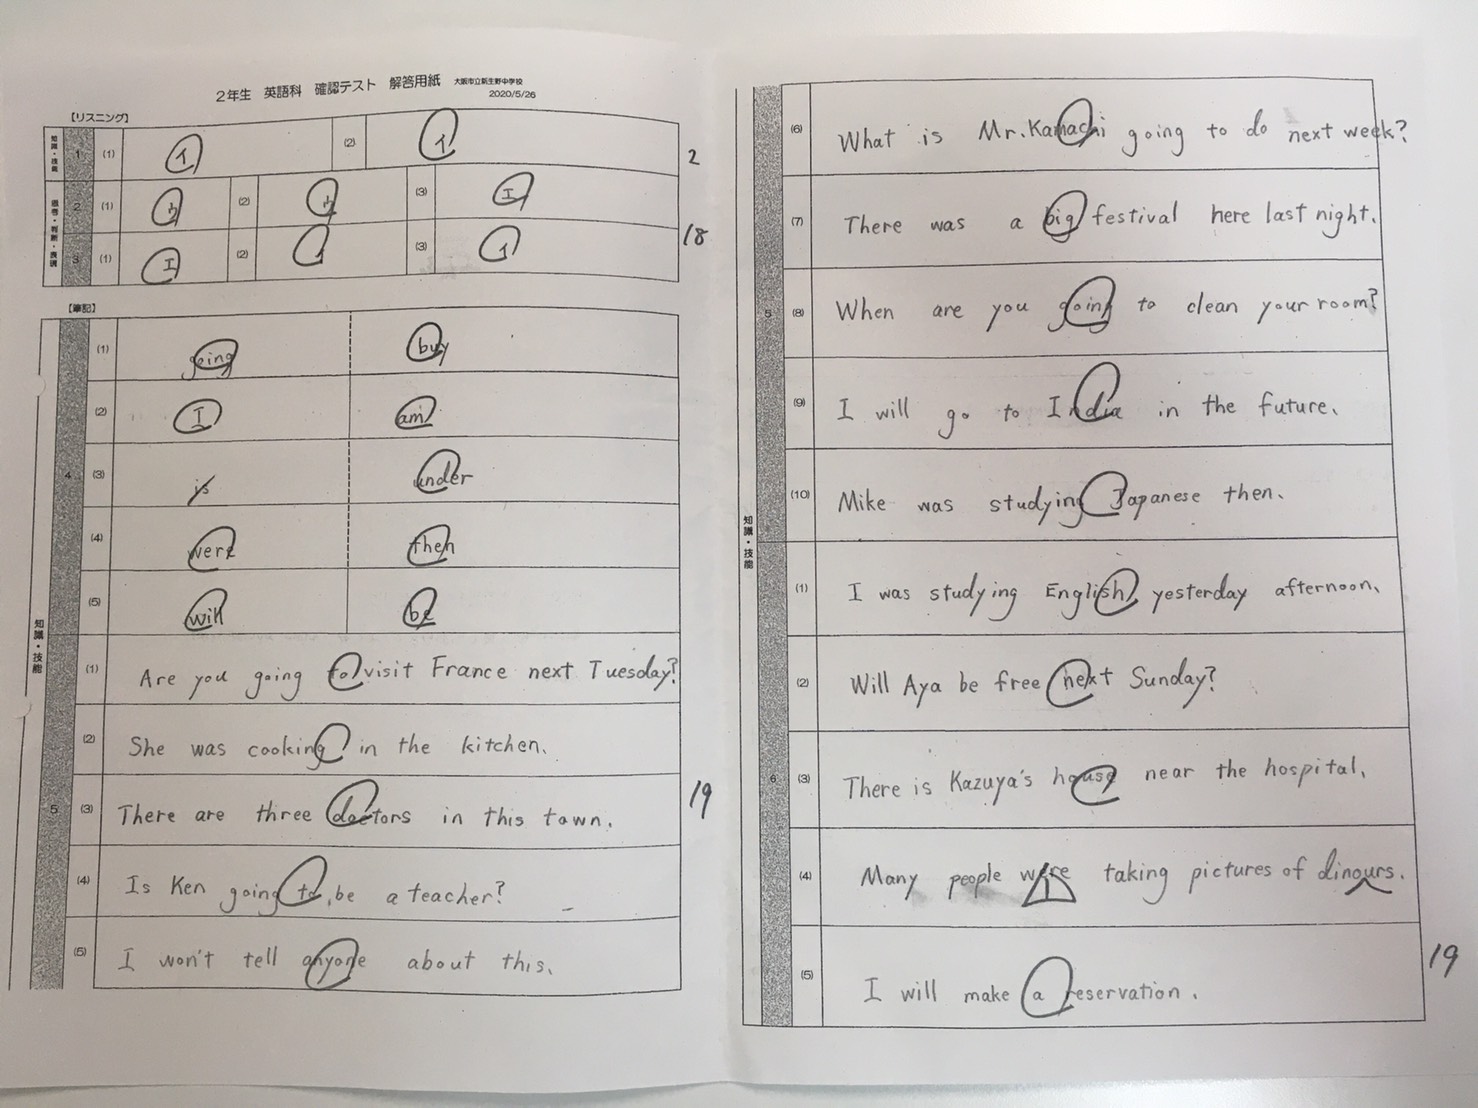 2年生 英語科 確認テスト 解答用紙 大阪市立新生野中学校
2020/5/26
【リスニング】
知識・技能 1 (1) イ (2) イ 2
思考・判断・表現 2 (1) ウ (2) ウ (3) エ
3 (1) エ (2) (3) イ 18
【筆記】
知識・技能
4 (1) going buy
(2) I am
(3) is under
(4) were then
(5) will be
5 (1) Are you going to visit France next Tuesday?
(2) She was cooking in the kitchen.
(3) There are three doctors in this town. 19
(4) Is Ken going to be a teacher?
(5) I won't tell anyone about this.
知識・技能
5 (6) What is Mr. Kamachi going to do next week?
(7) There was a big festival here last night.
(8) When are you going to clean your room?
(9) I will go to India in the future.
(10) Mike was studying Japanese then.
6 (1) I was studying English yesterday afternoon.
(2) Will Aya be free next Sunday?
(3) There is Kazuya's house near the hospital.
(4) Many people were taking pictures of dinours.
(5) I will make a reservation. 19